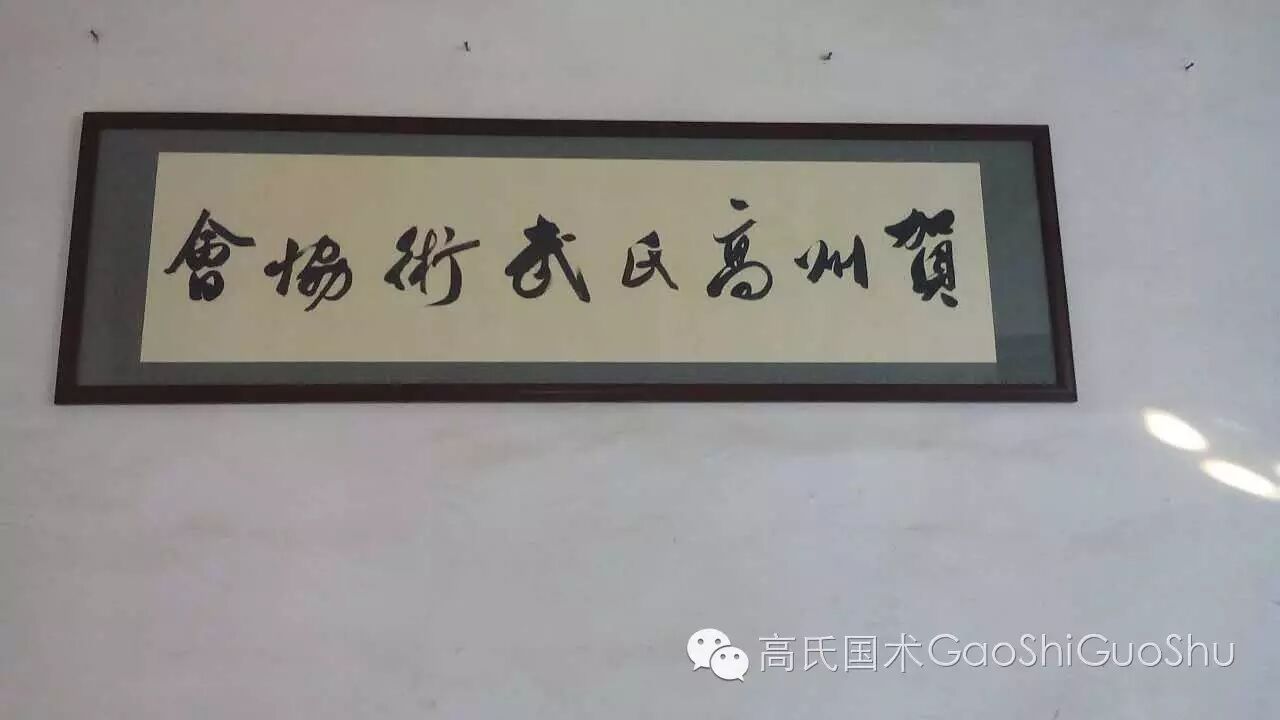 賀州高氏武術協會
高氏国术GaoShiGuoShu